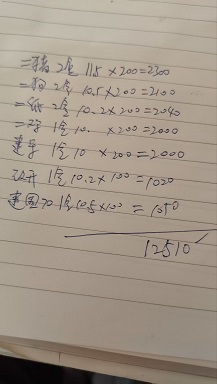 二 2仓 11.5×200=2300
二狗 2仓 10.5×200=2100
二纸 2仓 10.2×200=2040
二 1仓 10. ×200=2000
建 1仓 10 ×200=2000
1仓 10.2×100=1020
建国 1仓 10.5×100=1050
12510